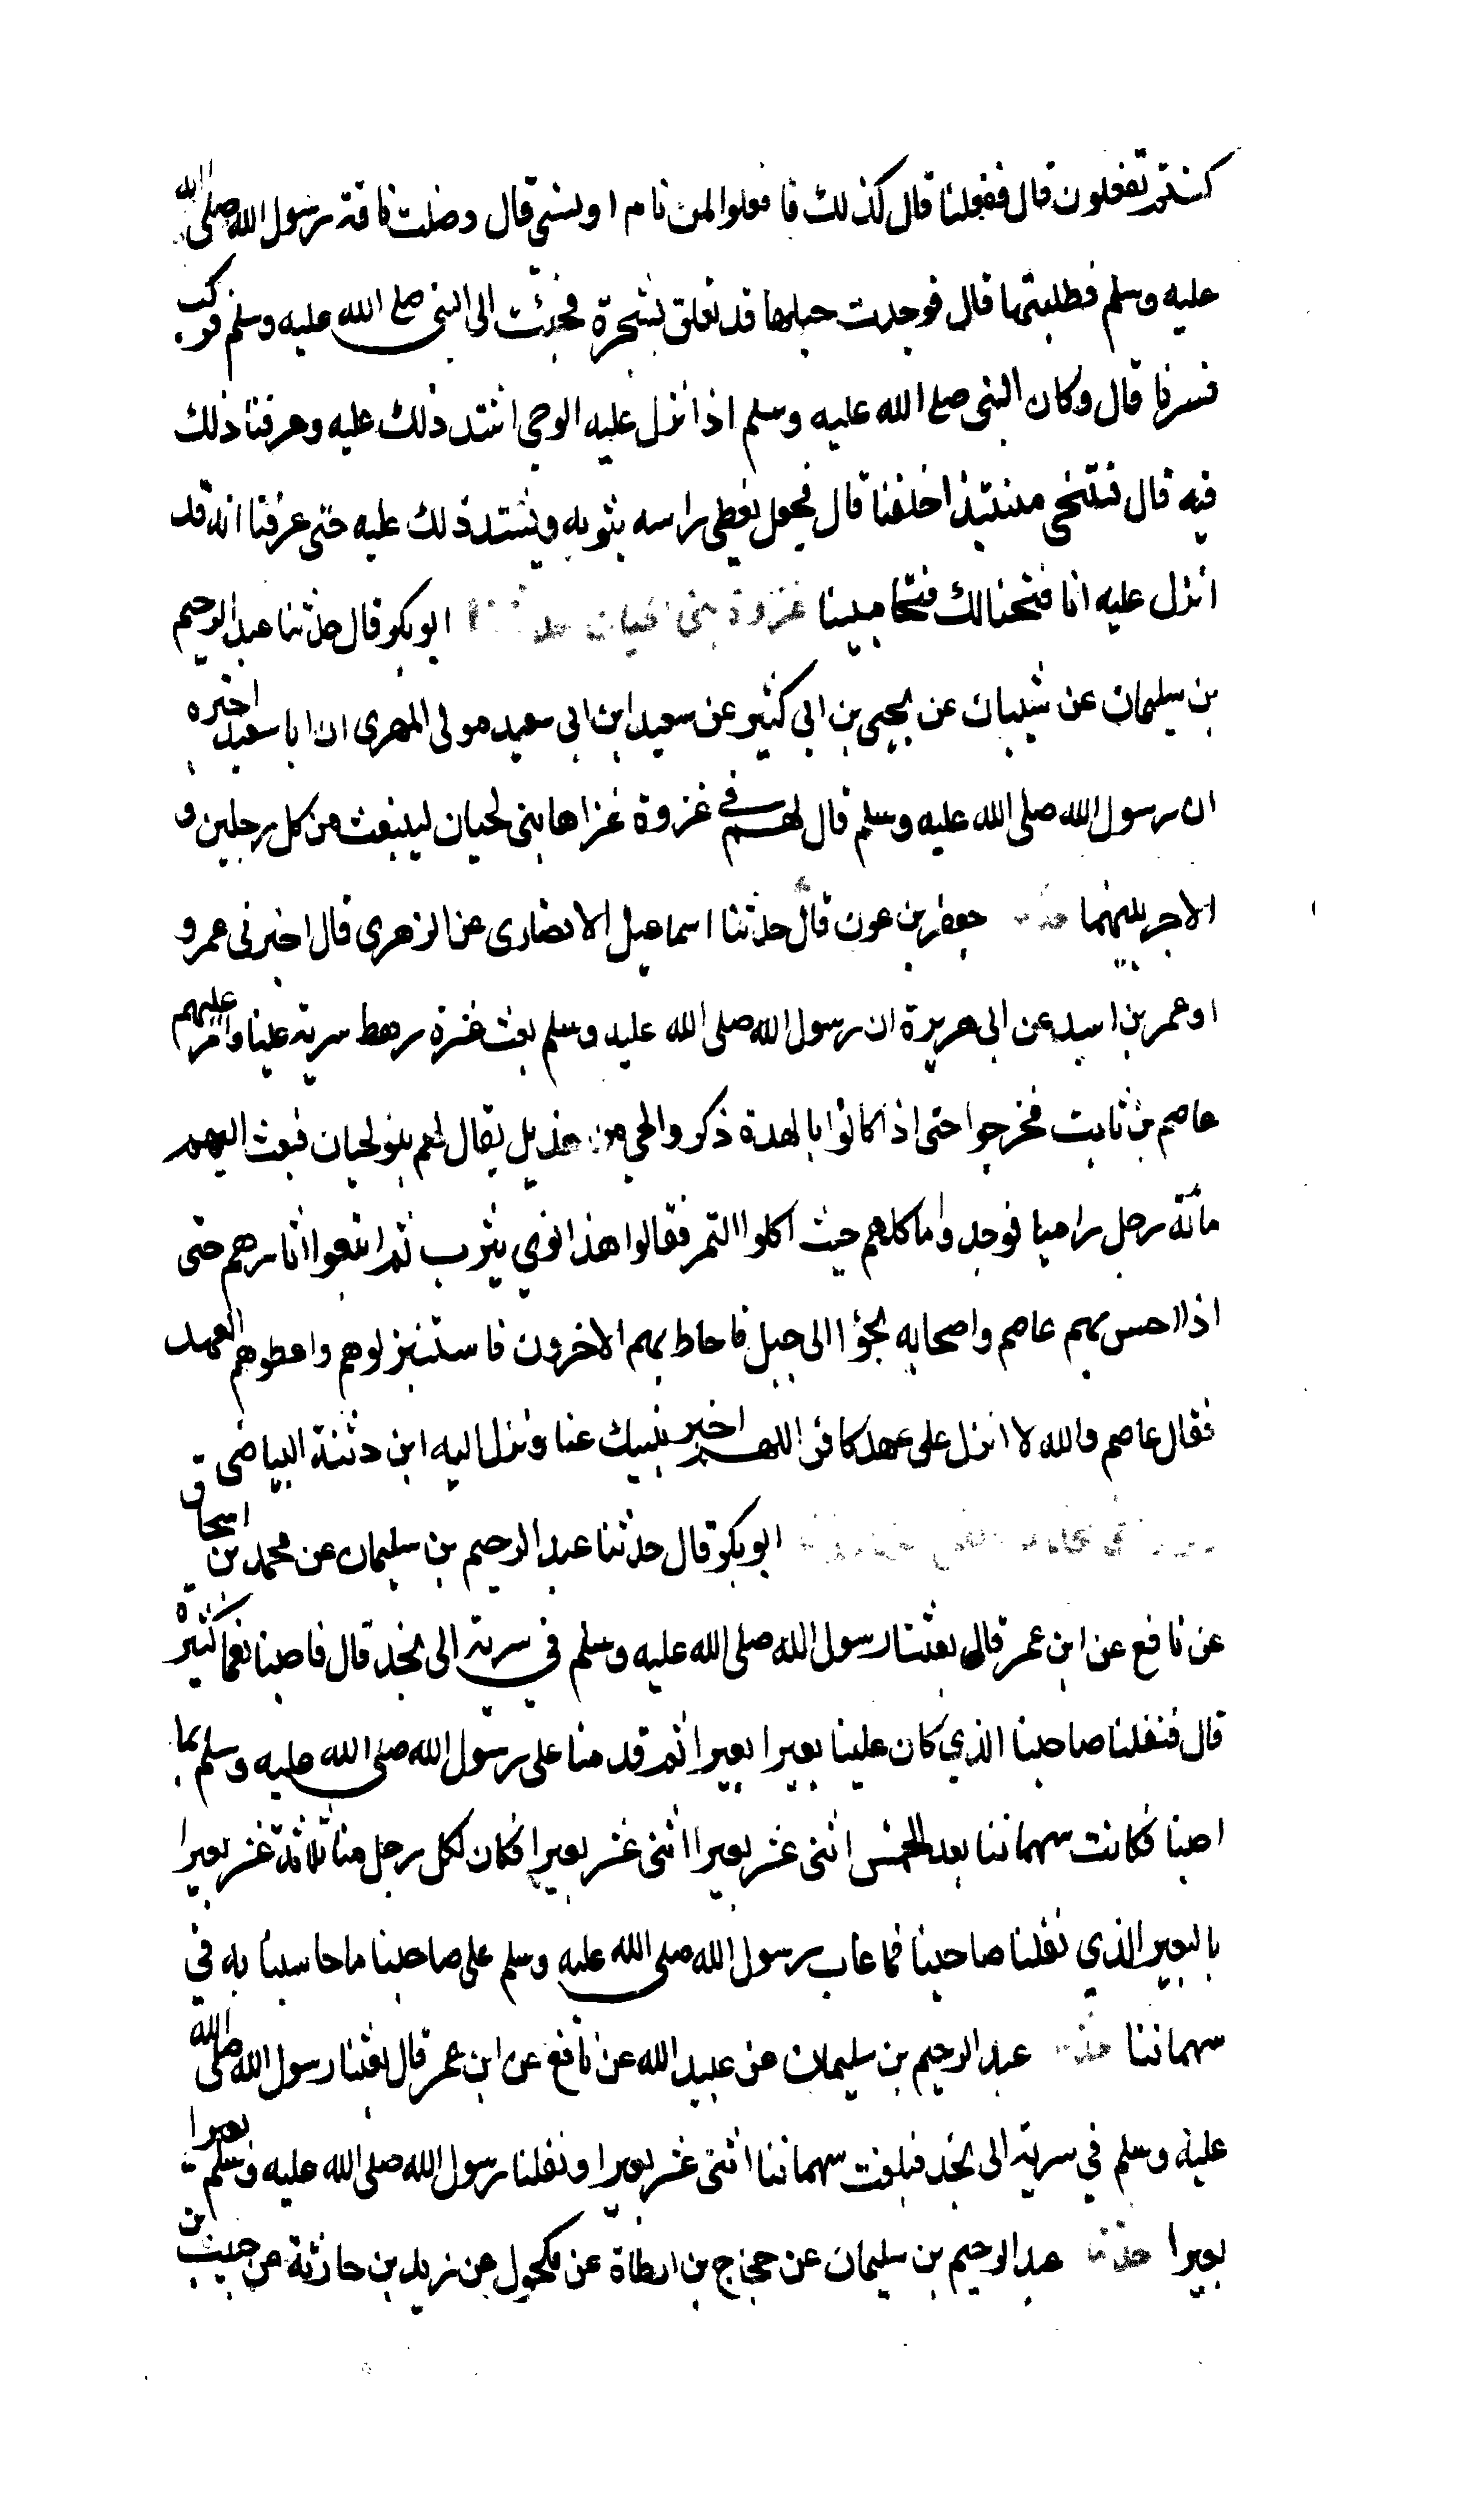 كنتم تفعلون قال ففعلنا قال كذلك فافعلوا لمن نام او نسي قال وضلت ناقة رسول الله صلى الله
عليه وسلم فطلبتها قال فوجدت حبلها قد تعلق بشجرة فجئت الى النبي صلى الله عليه وسلم فركب
فسرنا قال وكان النبي صلى الله عليه وسلم اذا نزل عليه الوحي اشتد ذلك عليه وعرفنا ذلك
فيه قال فتنحى منتبذا خلفنا قال فجعل يغطي راسه بثوبه ويشتد ذلك عليه حتى عرفنا انه قد
انزل عليه انا فتحنا لك فتحا مبينا غزوة بني لحيان حدثنا ابو بكر قال حدثنا عبد الرحيم
بن سليمان عن شيبان عن يحيى بن ابي كثير عن سعيد ابن ابي سعيد مولى المهري ان ابا سعيد اخبره
ان رسول الله صلى الله عليه وسلم قال لهم في غزوة غزاها بني لحيان لينبعث من كل رجلين و
الاجر بينهما حدثنا جعفر بن عون قال حدثنا اسماعيل الانصاري عن الزهري قال اخبرني عمرو
او عمر بن اسيد عن ابي هريرة ان رسول الله صلى الله عليه وسلم بعث عشرة رهط سرية عينا وامر عليهم
عاصم بن ثابت فخرجوا حتى اذا كانوا بالهدة ذكروا لحي من هذيل يقال لهم بنو لحيان فبعث اليهم
مائة رجل راميا فوجدوا ماكلهم حيث اكلوا التمر فقالوا هذا نوي يثرب ثم اتبعوا اثارهم حتى
اذا احس بهم عاصم واصحابه لجؤا الى جبل فاحاط بهم الاخرون فاستنزلوهم واعطوهم العهد
فقال عاصم والله لا انزل على عهد كافر اللهم اخبر نبيك عنا ونزل اليه ابن دثنة البياضي
ابو بكر قال حدثنا عبد الرحيم بن سليمان عن محمد بن اسحاق
عن نافع عن ابن عمر قال بعثنا رسول الله صلى الله عليه وسلم في سرية الى نجد قال فاصبنا نعما كثيرة
قال فنفلنا صاحبنا الذي كان علينا بعيرا بعيرا ثم قدمنا على رسول الله صلى الله عليه وسلم بما
اصبنا فكانت سهماننا بعد الخمس اثنى عشر بعيرا اثنى عشر بعيرا فكان لكل رجل منا ثلاثة عشر بعيرا
بالبعير الذي نفلنا صاحبنا فما عاب رسول الله صلى الله عليه وسلم على صاحبنا ما حاسبنا به في
سهماننا حدثنا عبد الرحيم بن سليمان عن عبيد الله عن نافع عن ابن عمر قال بعثنا رسول الله صلى الله
عليه وسلم في سرية الى نجد فبلغت سهماننا اثنى عشر بعيرا ونفلنا رسول الله صلى الله عليه وسلم بعيرا
بعيرا حدثنا عبد الرحيم بن سليمان عن حجاج بن ارطاة عن مكحول عن زيد بن حارثة عن حبيب بن